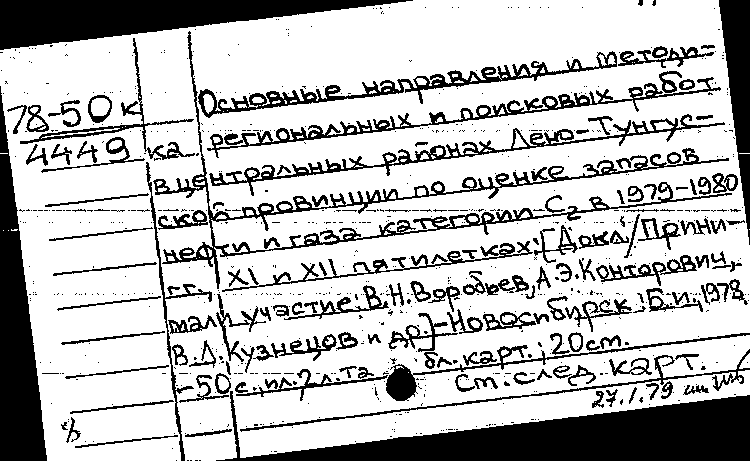 78-50к
4449
Основные направления и методи=
ка региональных и поисковых работ
в центральных районах Лено-Тунгус-
ской провинции по оценке запасов
нефти и газа категории С2 в 1979-1980
гг., XI и XII пятилетках: [Докл./Прини-
мали участие: В.Н.Воробьев, А.Э.Конторович,
В.Д.Кузнецов и др.]-Новосибирск: Б.и., 1978.
-50с., ил., 2 л. табл., карт.; 20см.
См. след. карт.
27.1.79